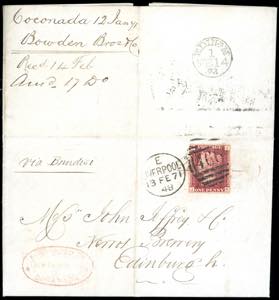 Coconada 12 Jany 71
Bowden Bros & Co
Recd 14 Feb
Ansd 17 Do
via Brindisi
E
LIVERPOOL
13 FE 71
49
466
ONE PENNY
Messrs John Jeffrey & Co.
Heriot Brewery
Edinburgh.